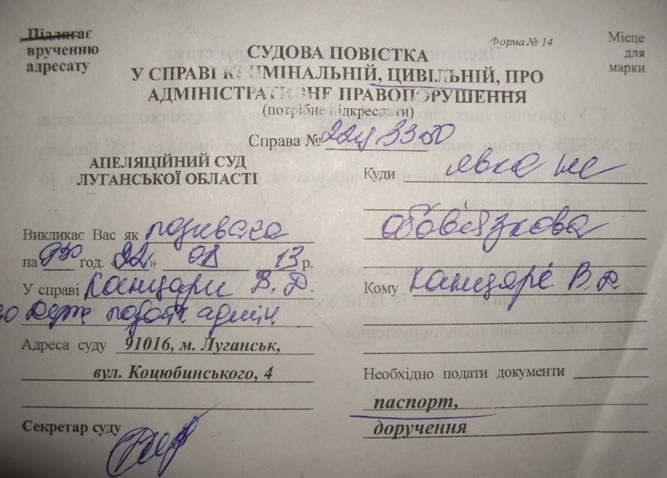 Підлягає
врученню
адресату
Форма № 14
Місце
для
марки
СУДОВА ПОВІСТКА
У СПРАВІ КРИМІНАЛЬНІЙ, ЦИВІЛЬНІЙ, ПРО
АДМІНІСТРАТИВНЕ ПРАВОПОРУШЕННЯ
(потрібне підкреслити)
Справа № 22ц 3300
АПЕЛЯЦІЙНИЙ СУД
ЛУГАНСЬКОЇ ОБЛАСТІ
Викликає Вас як позивача
на 9 30 год. «22» 08 13 р.
У справі Канцари В. Д.
до Держ податк. адмін
Адреса суду 91016, м. Луганськ,
вул. Коцюбинського, 4
Секретар суду
Куди явка не
обов'язкова
Кому Канцаре В. Д.
Необхідно подати документи
паспорт,
доручення